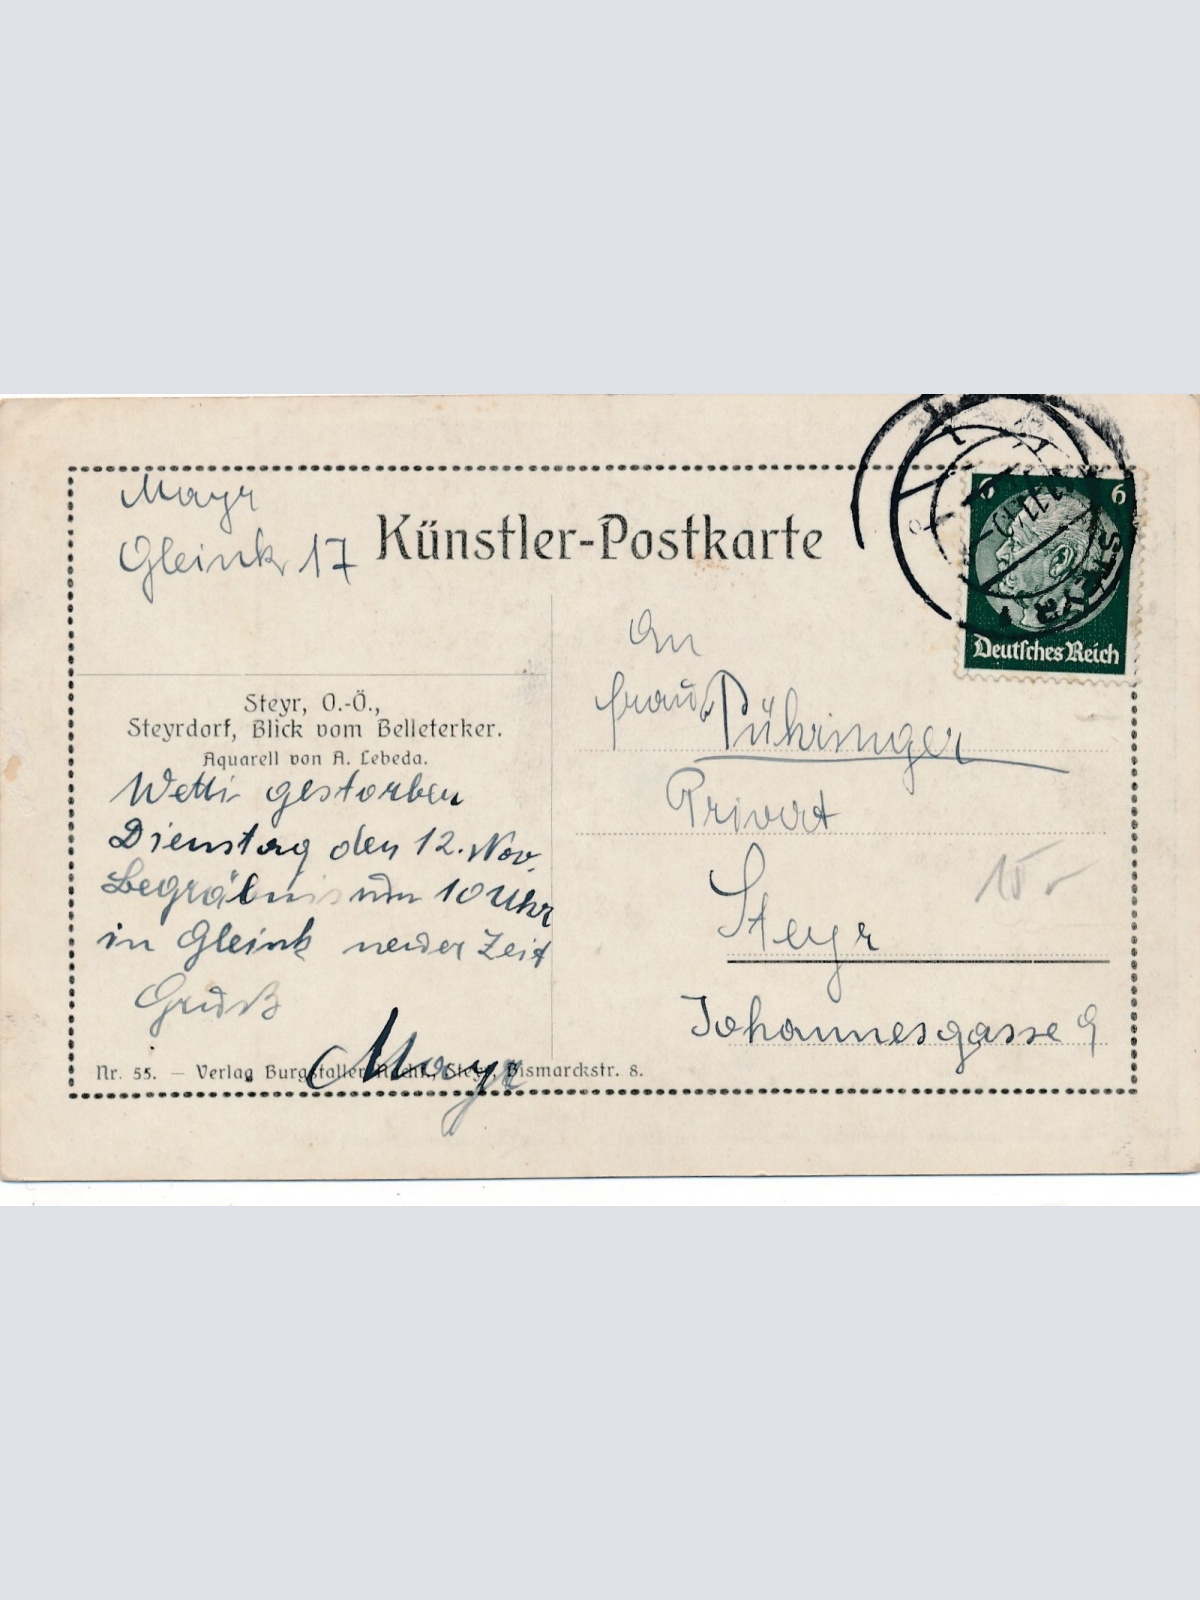 Mayr
Gleink 17
Künstler-Postkarte
6 6
STEYR 1
Deutsches Reich
An
Frau Pühringer
Privat
Steyr
Johannesgasse 9
Steyr, O.-Ö.,
Steyrdorf, Blick vom Belleterker.
Aquarell von A. Lebeda.
Wetti gestorben
Dienstag den 12. Nov.
Begräbnis um 10 Uhr
in Gleink Zeit
Gruß
Mayr
Nr. 55. — Verlag Burgstaller Nachf., Steyr, Bismarckstr. 8.